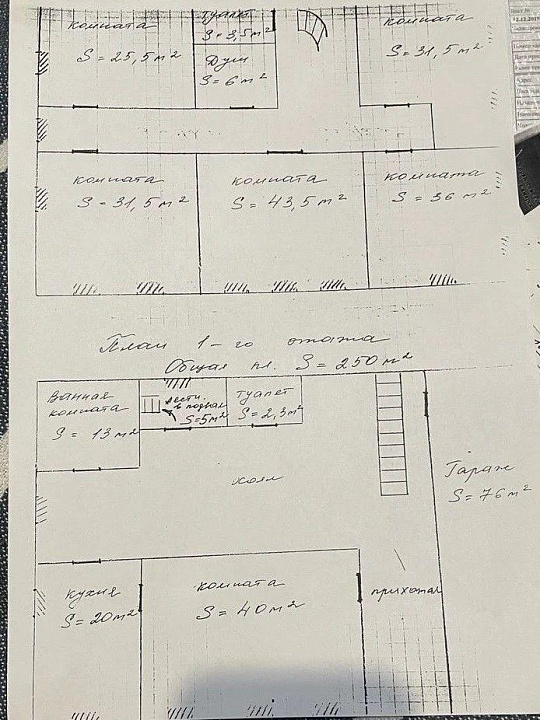 комната
S = 25,5 м²
туалет
S = 3,5 м²
Душ
S = 6 м²
комната
S = 31,5 м²
комната
S = 31,5 м²
комната
S = 43,5 м²
комната
S = 36 м²
План 1-го этажа
Общая пл. S = 250 м²
Ванная
комната
S = 13 м²
лестн.
в подвал
S=5м²
туалет
S = 2,3 м²
холл
Гараж
S = 76 м²
кухня
S = 20 м²
комната
S = 40 м²
прихожая